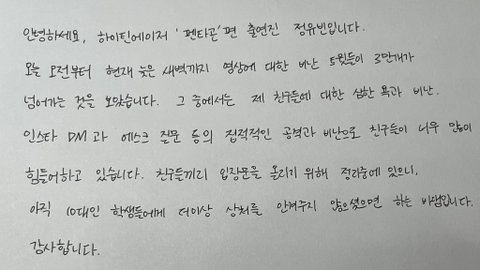 안녕하세요, 하이틴에이저 '펜타곤'편 출연진 정유빈입니다.
오늘 오전부터 현재 늦은 새벽까지 영상에 대한 비난 트윗들이 3만개가
넘어가는 것을 보았습니다. 그 중에서는 제 친구들에 대한 심한 욕과 비난.
인스타 DM과 에스크 질문 등의 접적적인 공격과 비난으로 친구들이 너무 많이
힘들어하고 있습니다. 친구들끼리 입장문을 올리기 위해 정리중에 있으니,
아직 10대인 학생들에게 더이상 상처를 안겨주지 않으셨으면 하는 바램입니다.
감사합니다.